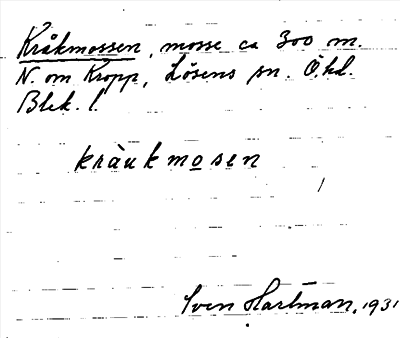 Kråkmossen, mosse ca 300 m.
N. om Kropp, Lösens sn. Ö. hd.
Blek. l.
kràukmosen
Sven Hartman, 1931